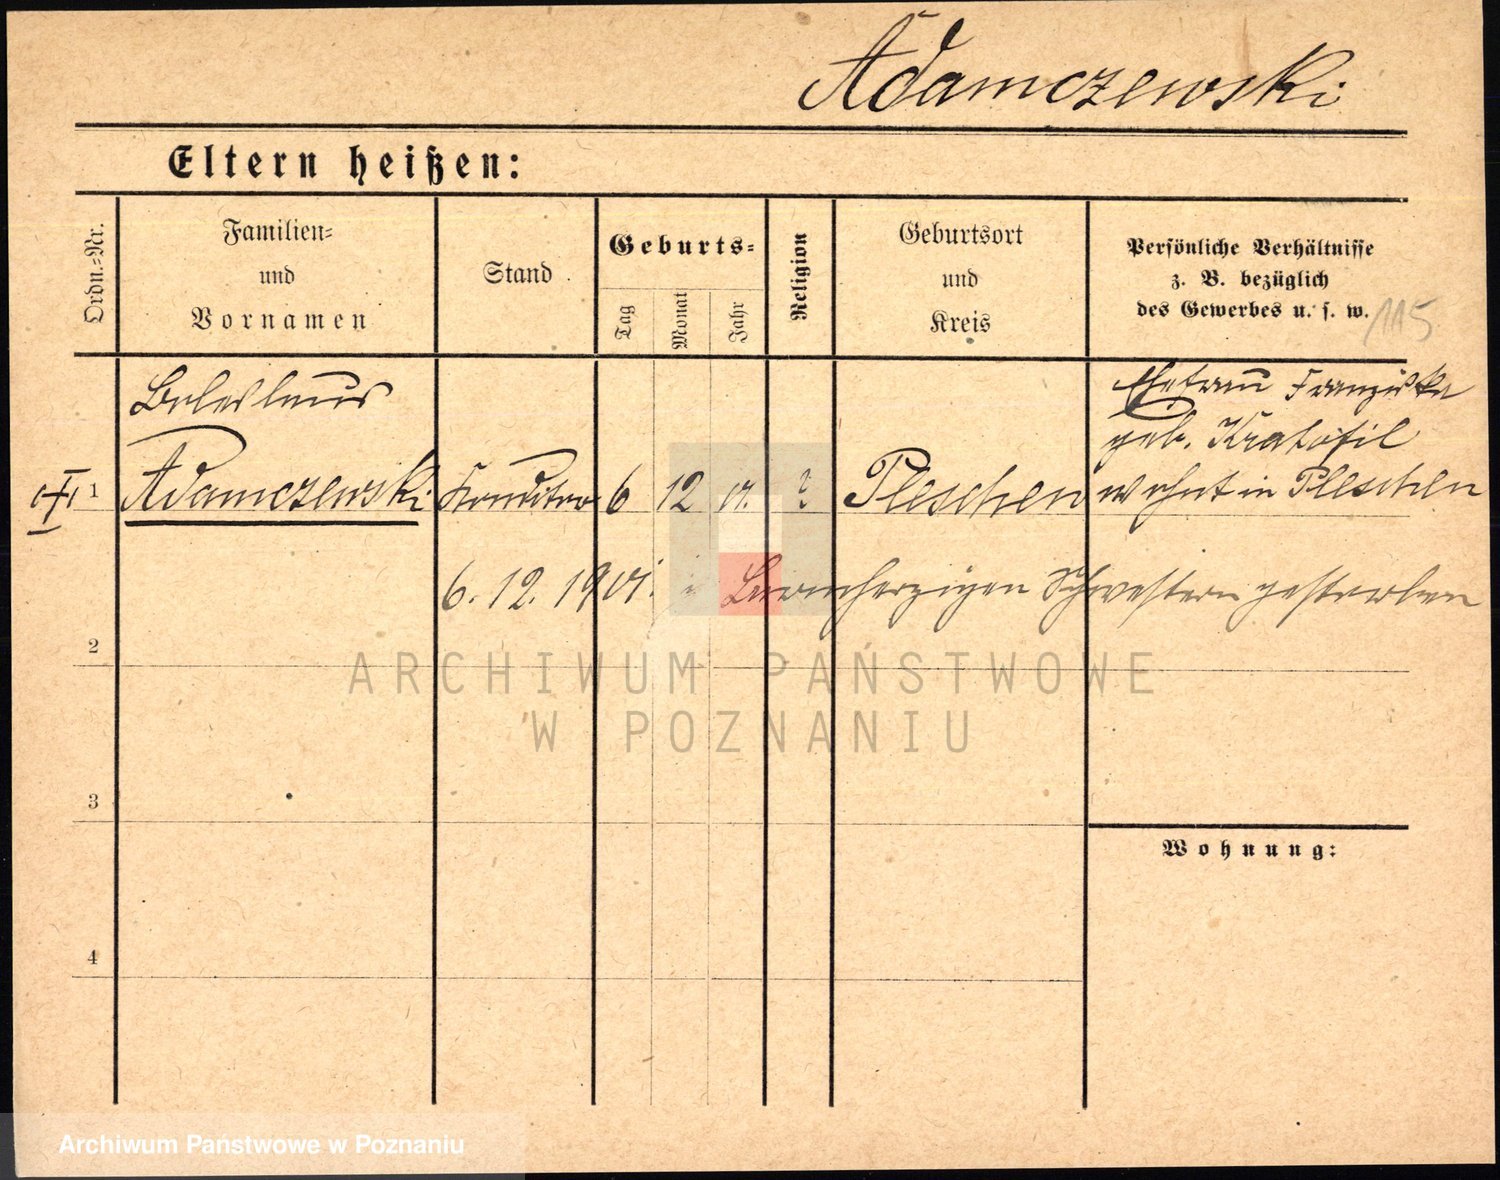 Adamczewski
Eltern heißen:
Ordn.-Nr.
Familien-
und
Vornamen
Stand
Geburts-
Tag
Monat
Jahr
Religion
Geburtsort
und
Kreis
Persönliche Verhältnisse
z. B. bezüglich
des Gewerbes u. s. w.
115
Boleslaus
Ehefrau Franziska
geb. Kratofil
1 Adamczewski Konditor 6 12 01. ? Pleschen wohnt in Pleschen
6. 12. 1901. i Barmherzigen Schwestern gestorben
2
ARCHIWUM PAŃSTWOWE
W POZNANIU
3
Wohnung:
4
Archiwum Państwowe w Poznaniu